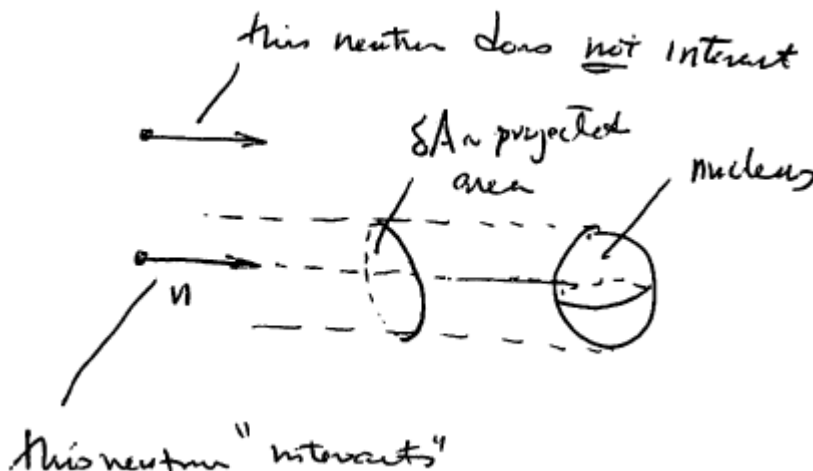 this neutron does not interact
δA ~ projected
area
nucleus
n
this neutron "interacts"